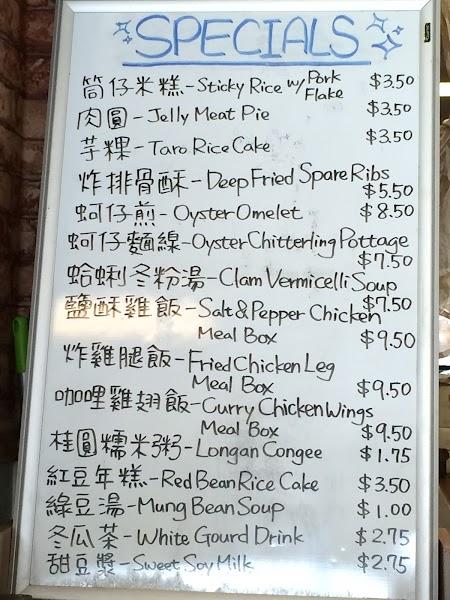 SPECIALS
筒仔米糕-Sticky Rice w/ Pork Flake $3.50
肉圓-Jelly Meat Pie $3.50
芋粿-Taro Rice Cake $3.50
炸排骨酥-Deep Fried Spare Ribs
$5.50
蚵仔煎-Oyster Omelet $8.50
蚵仔麵線-Oyster Chitterling Pottage
$7.50
蛤蜊冬粉湯-Clam Vermicelli Soup
$7.50
鹽酥雞飯-Salt & Pepper Chicken
Meal Box $9.50
炸雞腿飯-Fried Chicken Leg
Meal Box $9.50
咖哩雞翅飯-Curry Chicken Wings
Meal Box $9.50
桂圓糯米粥-Longan Congee $1.75
紅豆年糕-Red Bean Rice Cake $3.50
綠豆湯-Mung Bean Soup $1.00
冬瓜茶-White Gourd Drink $2.75
甜豆漿-Sweet Soy Milk $2.75